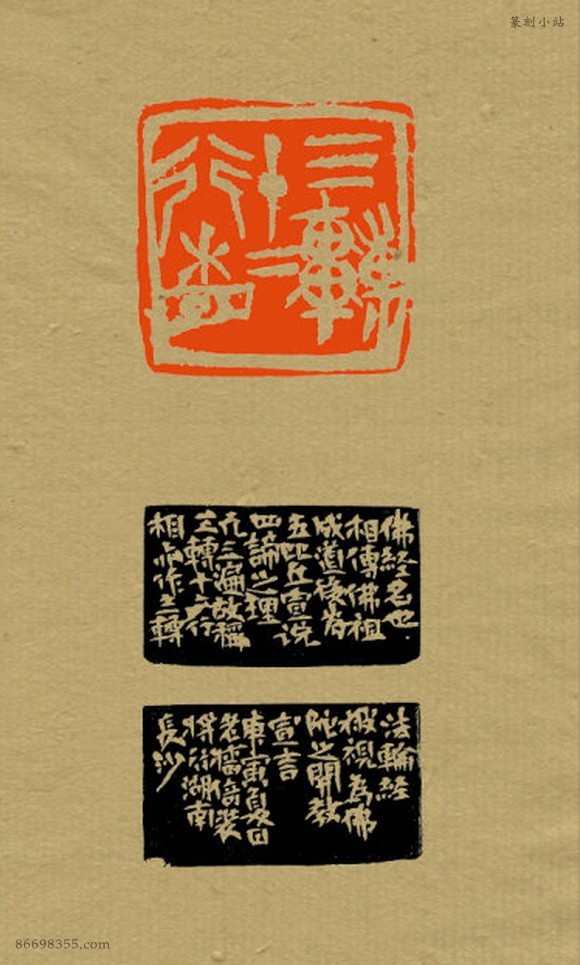 篆刻小站
三轉
十二
行相
佛經名也
相傳佛祖
成道後为
五比丘宣说
四論之理
凡三遍故稱
三轉十二行
相亦作三轉
法輪經
被視為佛
陀之開教
宣言
庚寅夏日
老倚裝
將行湖南
長沙
86698355.com